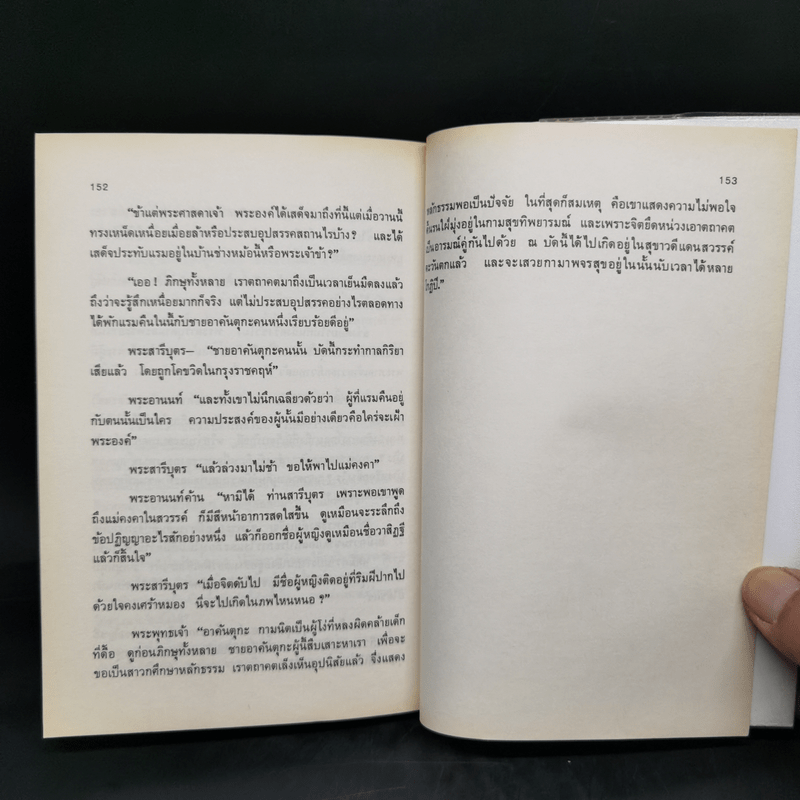 152
“ข้าแต่พระศาสดาเจ้า พระองค์ได้เสด็จมาถึงที่นี้แต่เมื่อวานนี้
ทรงเหน็ดเหนื่อยเมื่อยล้าหรือประสบอุปสรรคสถานไรบ้าง? และได้
เสด็จประทับแรมอยู่ในบ้านช่างหม้อนี้หรือพระเจ้าข้า?”
“เออ! ภิกษุทั้งหลาย เราตถาคตมาถึงเป็นเวลาเย็นมืดลงแล้ว
ถึงว่าจะรู้สึกเหนื่อยมากก็จริง แต่ไม่ประสบอุปสรรคอย่างไรตลอดทาง
ได้พักแรมคืนในนี้กับชายอาคันตุกะคนหนึ่งเรียบร้อยดีอยู่”
พระสารีบุตร— “ชายอาคันตุกะคนนั้น บัดนี้กระทำกาลกิริยา
เสียแล้ว โดยถูกโคขวิดในกรุงราชคฤห์”
พระอานนท์ “และทั้งเขาไม่นึกเฉลียวด้วยว่า ผู้ที่แรมคืนอยู่
กับตนนั้นเป็นใคร ความประสงค์ของผู้นั้นมีอย่างเดียวคือใคร่จะเฝ้า
พระองค์”
พระสารีบุตร “แล้วล่วงมาไม่ช้า ขอให้พาไปแม่คงคา”
พระอานนท์ค้าน “หามิได้ ท่านสารีบุตร เพราะพอเขาพูด
ถึงแม่คงคาในสวรรค์ ก็มีสีหน้าอาการสดใสขึ้น ดูเหมือนจะระลึกถึง
ข้อปฏิญญาอะไรสักอย่างหนึ่ง แล้วก็ออกชื่อผู้หญิงดูเหมือนชื่อวาสิฏฐี
แล้วก็สิ้นใจ”
พระสารีบุตร “เมื่อจิตดับไป มีชื่อผู้หญิงติดอยู่ที่ริมฝีปากไป
ด้วยใจคงเศร้าหมอง นี่จะไปเกิดในภพไหนหนอ?”
พระพุทธเจ้า “อาคันตุกะ กามนิตเป็นผู้โง่ที่หลงผิดคล้ายเด็ก
ที่ดื้อ ดูก่อนภิกษุทั้งหลาย ชายอาคันตุกะผู้นี้สืบเสาะหาเรา เพื่อจะ
ขอเป็นสาวกศึกษาหลักธรรม เราตถาคตเล็งเห็นอุปนิสัยแล้ว จึ่งแสดง
153
หลักธรรมพอเป็นปัจจัย ในที่สุดก็สมเหตุ คือเขาแสดงความไม่พอใจ
ดิ้นรนใฝ่มุ่งอยู่ในกามสุขทิพยารมณ์ และเพราะจิตยึดหน่วงเอาตถาคต
เป็นอารมณ์คู่กันไปด้วย ณ บัดนี้ได้ไปเกิดอยู่ในสุขาวดีแดนสวรรค์
ตะวันตกแล้ว และจะเสวยกามาพจรสุขอยู่ในนั้นนับเวลาได้หลาย
โกฏิปี.”